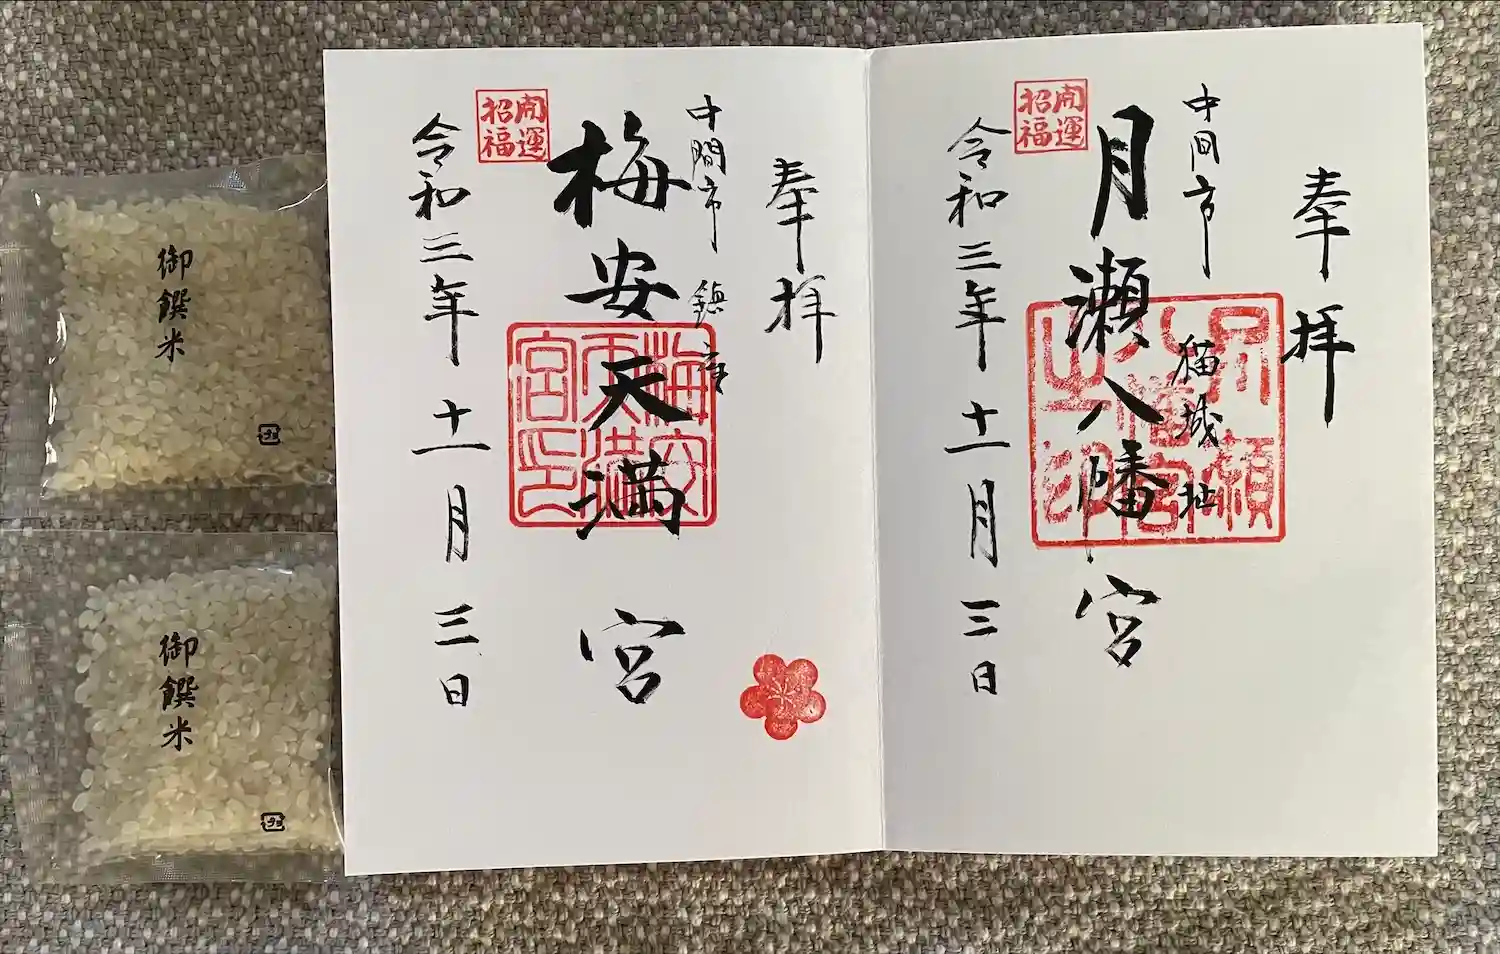 奉拝
中間市 猫城址
月瀬八幡宮
開運
招福
令和三年十一月三日
奉拝
中間市 鎮守
梅安天満宮
梅安
天満
宮印
開運
招福
令和三年十一月三日
御饌米
プラ
御饌米
プラ